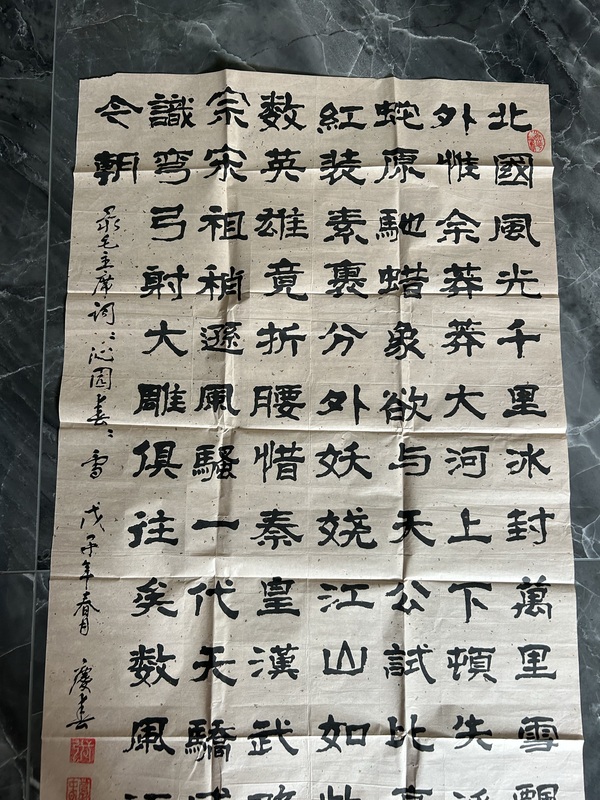 北國風光千里冰封萬里雪飄
外惟余莽莽大河上下頓失
蛇原馳蜡象欲与天公試比高
紅装素裹分外妖娆江山如此
数英雄竟折腰惜秦皇漢武略
宗宋祖稍遜風騷一代天驕成
識彎弓射大雕俱往矣数風
今朝
录毛主席词:沁园春:雪 戊子年春月 慶春